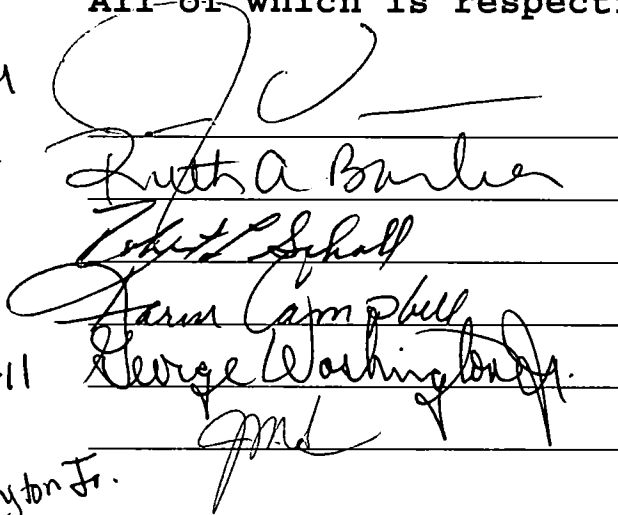 All of which is respecti
Ruth A Barber
Robert L Schall
Karen Campbell
George Washington Jr.
ll
yton Jr.